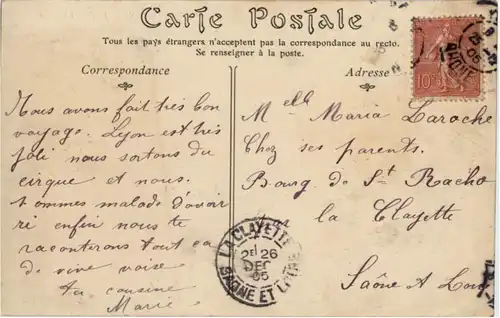 Carte Postale
Tous les pays étrangers n'acceptent pas la correspondance au recto.
Se renseigner à la poste.
Correspondance
Adresse
Nous avons fait très bon
voyage. Lyon est très
joli nous sortons du
cirque et nous
sommes malade d'avoir
ri enfin nous te
raconterons tout ca
de vive voise
ta cousine
Marie
Melle Maria Laroche
Chez ses parents.
Bourg de St Racho
la Clayette
Saône & Loire
LA CLAYETTE
2E 26
DEC
05
SAONE ET LOIRE
10c
05
RHONE